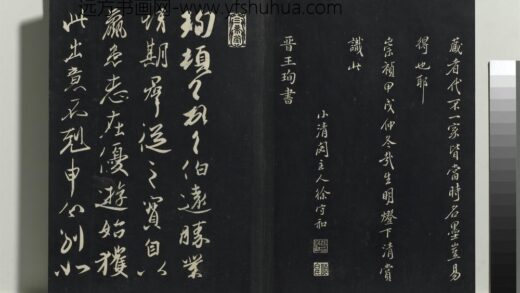 远方书画网-www.yfshuhua.com
藏者代不一家皆當時名墨豈易
得也耶
崇禎甲戌仲冬哉生明燈下清賞
識此
小清閟主人徐守和
晉王珣書
珣頓首頓首伯遠勝業
情期群從之寶自以
羸患志在優遊始獲
此出意不剋申分別如